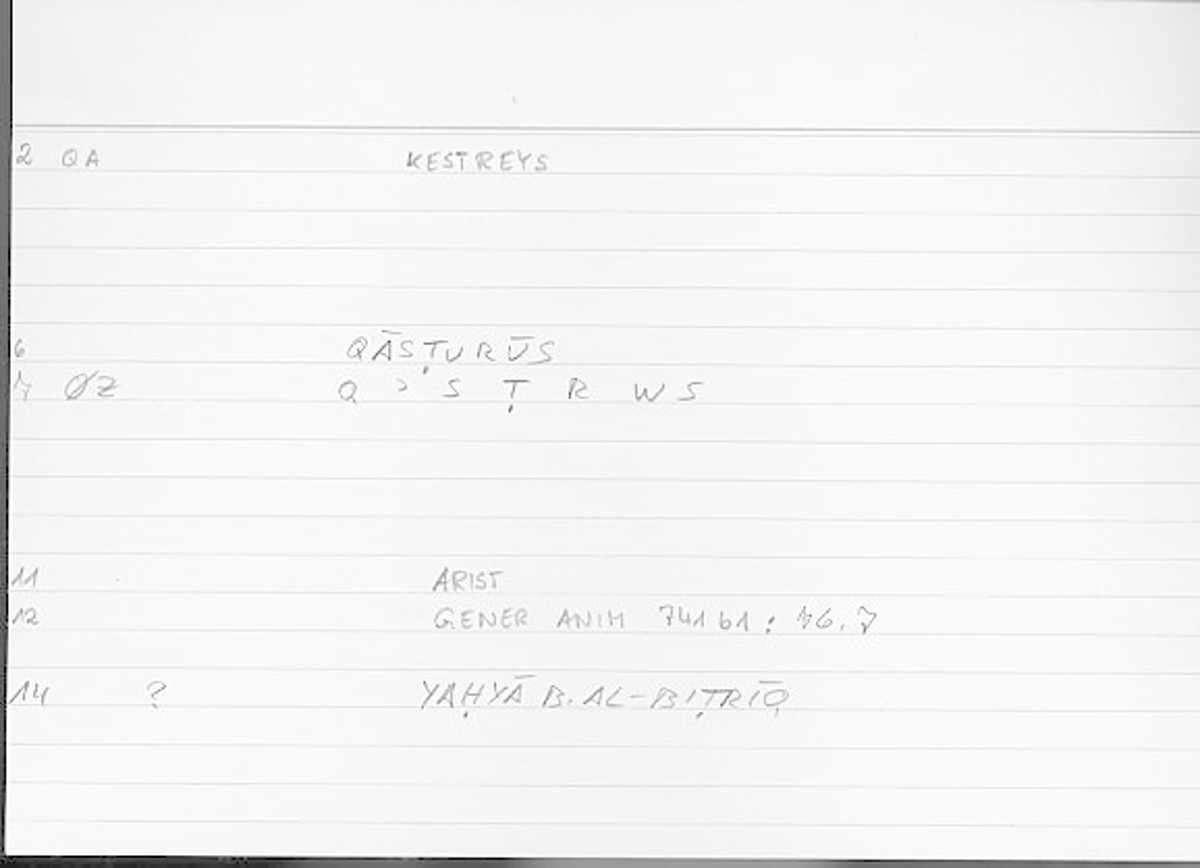 2 QA KESTREYS
6 QĀSṬURŪS
7 ØZ Q ʾ S Ṭ R W S
11 ARIST
12 GENER ANIM 741 b1 : 76.7
14 ? YAḤYĀ B. AL-BIṬRĪQ